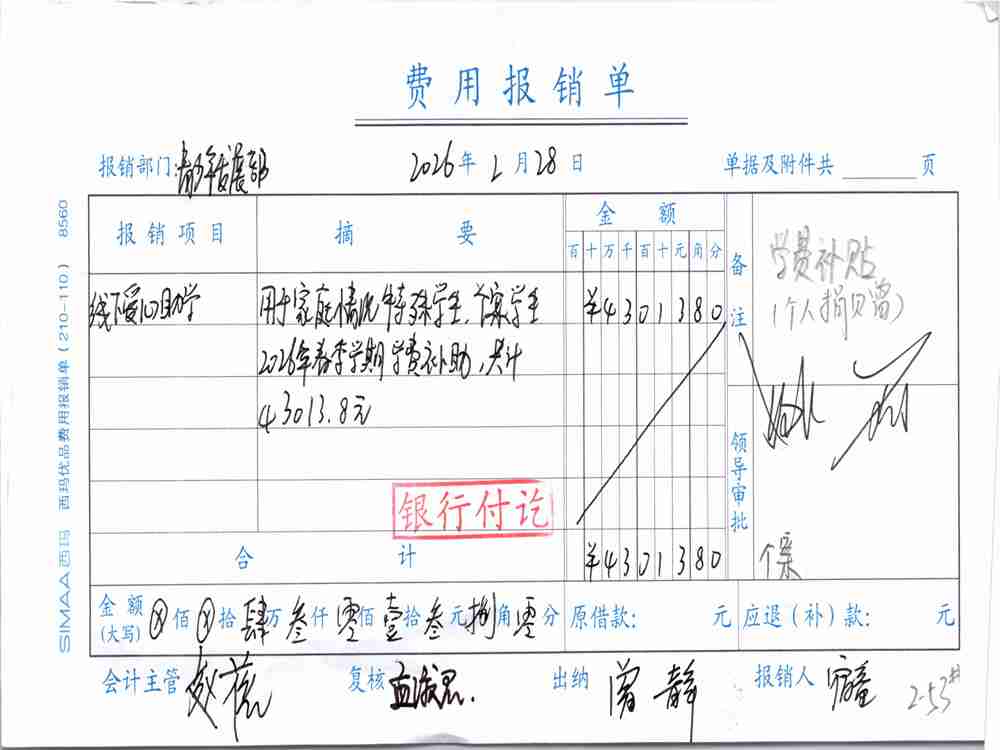 费用报销单
报销部门:青年发展部 2026年2月28日 单据及附件共 页
报销项目 摘要 金额 备注
百十万千百十元角分
线下爱心助学 用于家庭情况特殊学生、个案学生 ¥4301380
2026年春季学期学费补助,共计
43013.8元
学费补贴
(个人捐赠)
领导审批
个案
银行付讫
合计 ¥4301380
金额(大写) ⊗佰⊗拾肆万叁仟零佰壹拾叁元捌角零分 原借款: 元 应退(补)款: 元
会计主管 复核 出纳 曾静 报销人
2-53#
SIMAA西玛 西玛优品费用报销单(210-110) 8560